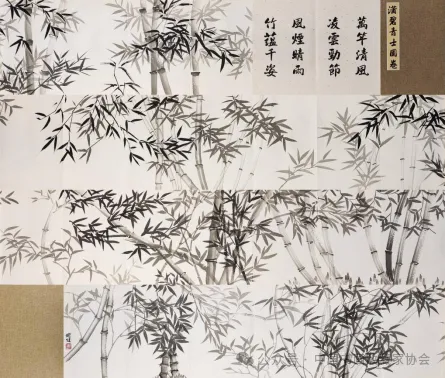 瀟碧青士圖卷
萬竿清風
凌雲勁節
風煙晴雨
竹蘊千姿
公众号 · 中国 家协会